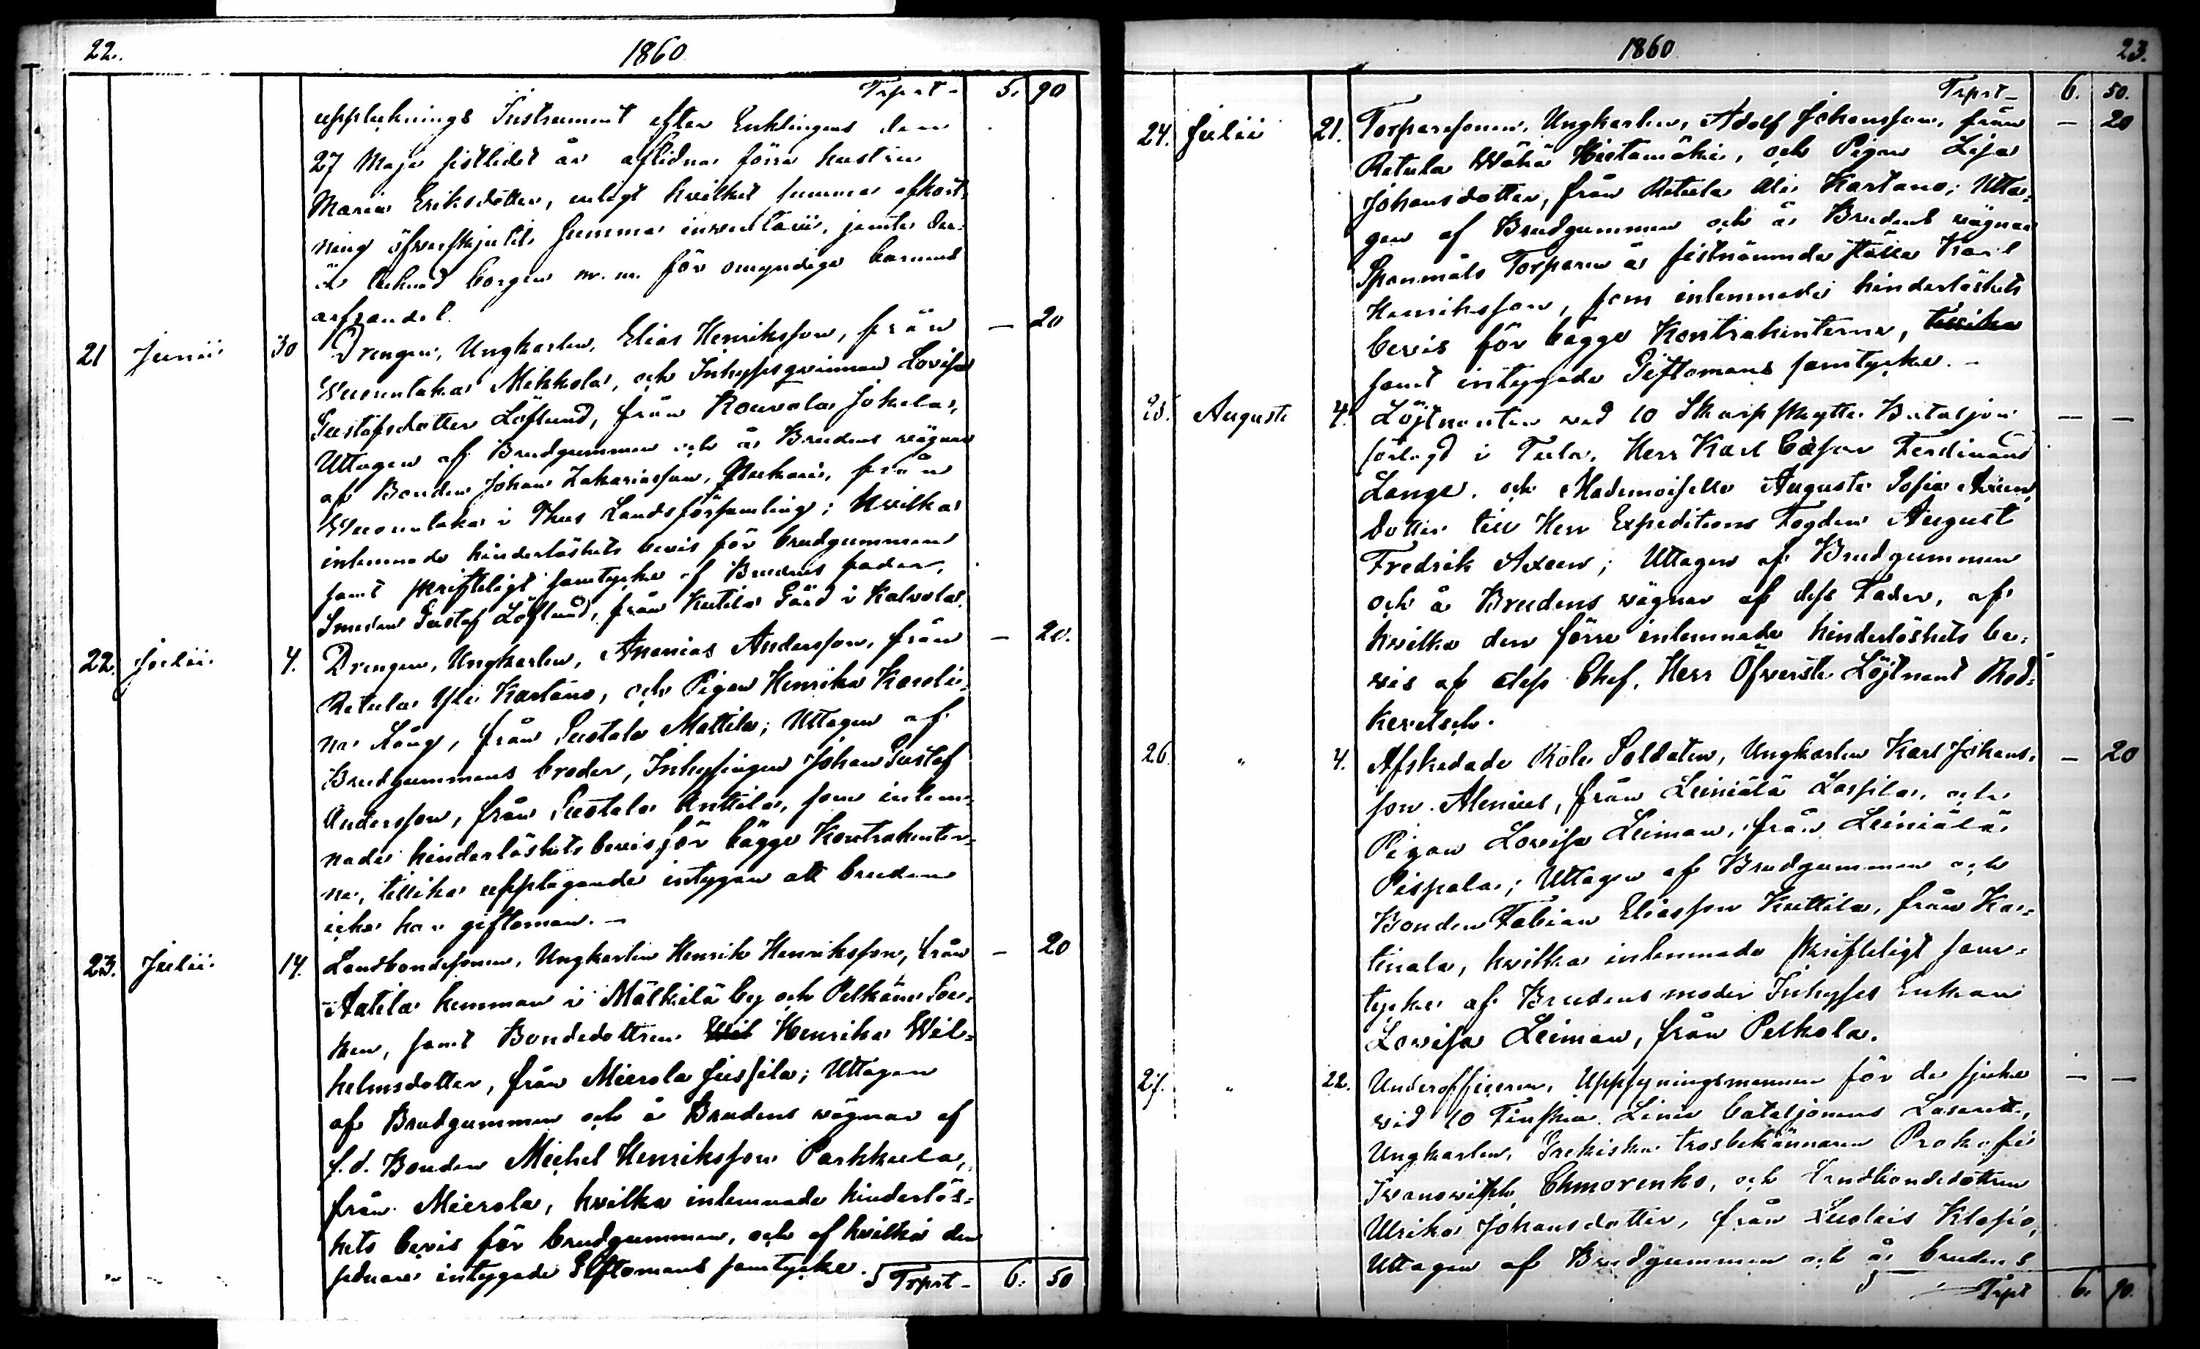 22. 1860
Trprt- 5. 90
uppteknings Instrument efter Enklingens den
27 Maji sistledet år aflidna förra hustru
Maria Eriksdotter, enligt hvilket summa afkort-
ning öfverskjutit summa inventarii, jemte der-
å teknad borgen m.m. för omyndige barnens
arfsandel.
21 Junii 30 Drengen, Ungkarlen, Elias Henriksson, från — 20
Wuorentaka Mikkola, och Inhysesqvinnan Lovisa
Gustafsdotter Löflund, från Rouvola Jokela,
Uttagen af Brudgummen och å Brudens vägnar
af Bonden Johan Zakariasson, från
Wuorentaka i Thus Landsförsamling; hvilka
inlemnade hinderlöshets bevis för brudgummen
samt skrifteligt samtycke af Brudens fader,
Smeden Gustaf Löflund, från Kutila Gård i Kalvola.
22. Julii 4. Drengen, Ungkarlen, Ananias Andersson, från — 20.
Retula Yli Kartano, och Pigan Henrika Karoli-
na Lång, från Pustala Mattila; Uttagen af
Brudgummens broder, Inhysingen Johan Gustaf
Andersson, från Pustala Anttila, som inlem-
nade hinderlöshets bevis för bägge Kontrahenter-
na, tillika uppläggande intygan att bruden
icke har giftoman. —
23. Julii 14. Landbondesonen, Ungkarlen Henrik Henriksson, från — 20
Aatila hemman i Mälkilä by och Pelkäne Soc-
ken, samt Bondedottren Wil Henrika Wil-
helmsdotter, från Mierola Jussila; Uttagen
af Brudgummen och å Brudens vägnar af
f.d. Bonden Michel Henriksson Parkkula,
från Mierola, hvilka inlemnade hinderlös-
hets bevis för brudgummen, och af hvilka den
sednare intygade Giftomans samtycke.
Trprt- 6. 50
1860 23.
Trprt- 6. 50.
24. Julii 21. Torparesonen, Ungkarlen, Adolf Johansson, från — 20
Retula Wähä Hiistamäki, och Pigan Lisa
Johansdotter, från Retula Ali Kartano; Utta-
gen af Brudgummen och å Brudens vägnar
Sponmåls Torparen å sistnämnda ställe Karl
Henriksson, som inlemnade hinderlöshets
bevis för bägge Kontrahenterna, tillika
samt intygade Giftomans samtycke. —
25. Augusti 4. Löjtnanten vid 10 Skarpskytte Bataljon — —
förlagd i Tula, Herr Karl Cæsar Ferdinand
Lange, och Mademoiselle Augusta Sofia Axeen,
Dotter till Herr Expeditions Fogden August
Fredrik Axeen; Uttagen af Brudgummen
och å Brudens vägnar af dess Fader, af
hvilka den förre inlemnade hinderlöshets be-
vis af dess Chef, Herr Öfverste Löjtnant Rod-
kevitsch.
26 " 4. Afskedade Rote Soldaten, Ungkarlen Karl Johans- — 20
son Alenius, från Leiniälä Lassila, och
Pigan Lovisa Leiman, från Leiniälä
Pispala; Uttagen af Brudgummen och
Bonden Fabian Eliasson Kuttila, från Ka-
tinala, hvilka inlemnade skrifteligt sam-
tycke af Brudens moder Inhyses Enkan
Lovisa Leiman, från Pelkola.
27. " 22. Underofficeren, Uppsyningsmannen för de sjuka — —
vid 10 Finska Linie bataljonens Lasarett,
Ungkarlen, Grekiska trosbekännaren Prokofi
Ivanovitsch Chmorenko, och Landbondedottren
Ulrika Johansdotter, från Luolais Klasio,
Uttagen af Brudgummen och å brudens
Trprt 6. 90.